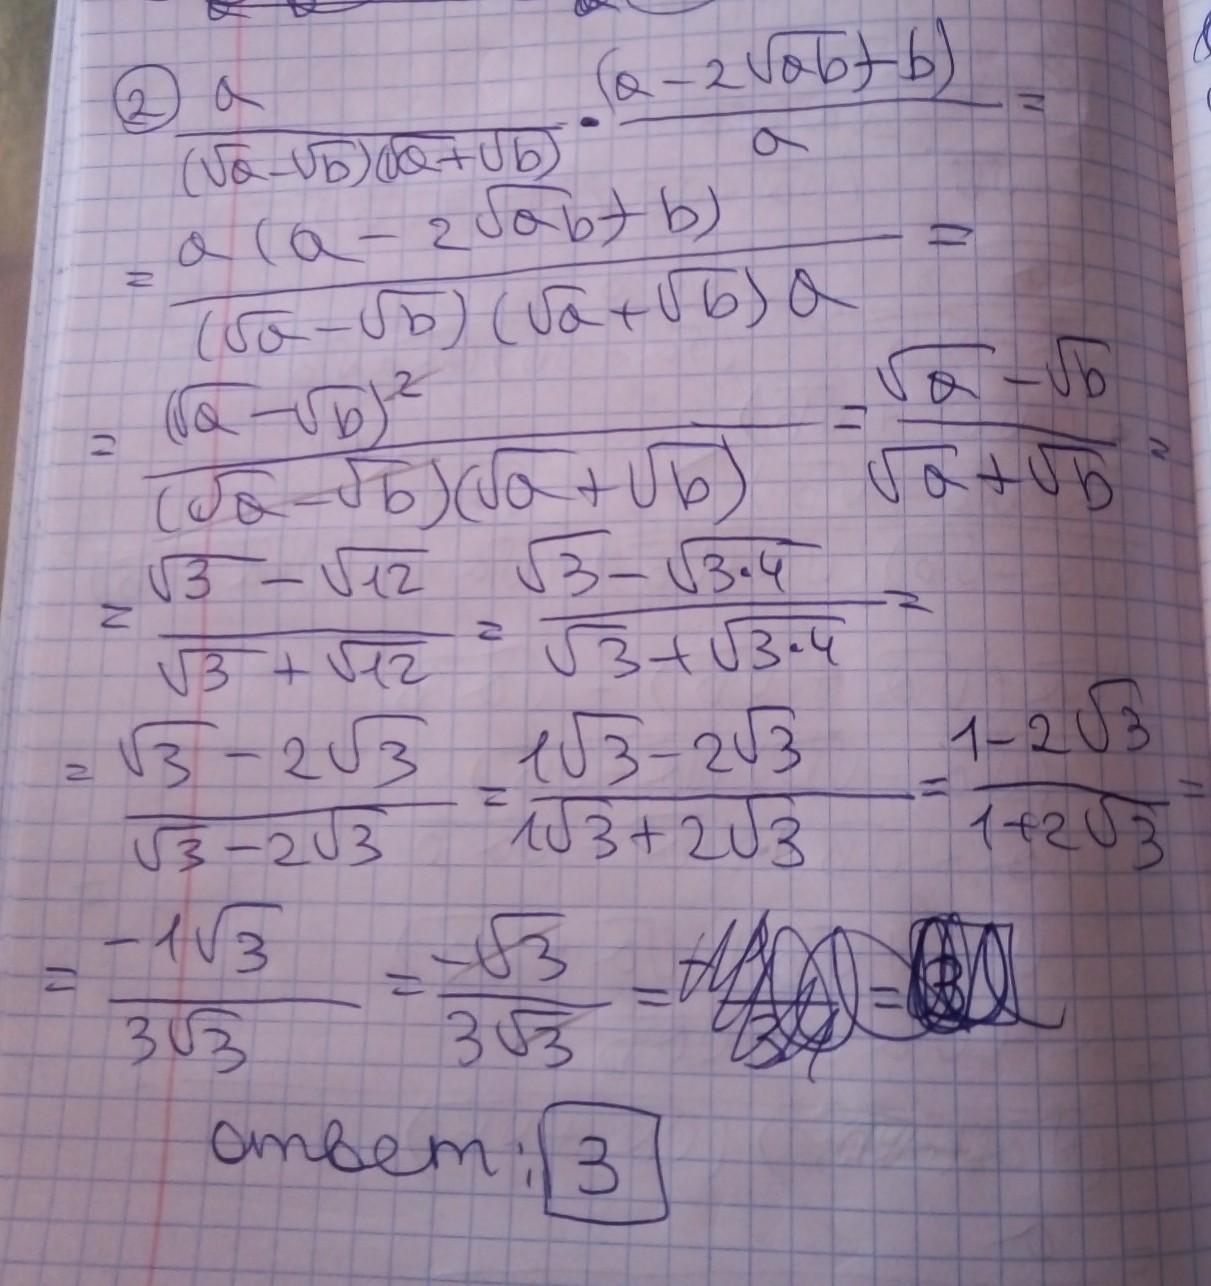 ② a/((√a-√b)(√a+√b)) · (a-2√ab+b)/a =
= a(a-2√ab+b)/((√a-√b)(√a+√b)a) =
= (√a-√b)²/((√a-√b)(√a+√b)) = (√a-√b)/(√a+√b) =
= (√3-√12)/(√3+√12) = (√3-√3·4)/(√3+√3·4) =
= (√3-2√3)/(√3-2√3) = (1√3-2√3)/(1√3+2√3) = (1-2√3)/(1+2√3) =
= -1√3/3√3 = -√3/3√3 = =
ответ: 3